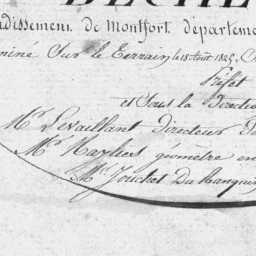 dissement de Montfort, départeme
miné Sur le Terrain le 18 Août 1825,
Préfet
et Sous la Direction
Mr. Levaillant directeur d
Mr. géomètre en
Mr. Touchet Du Manquis